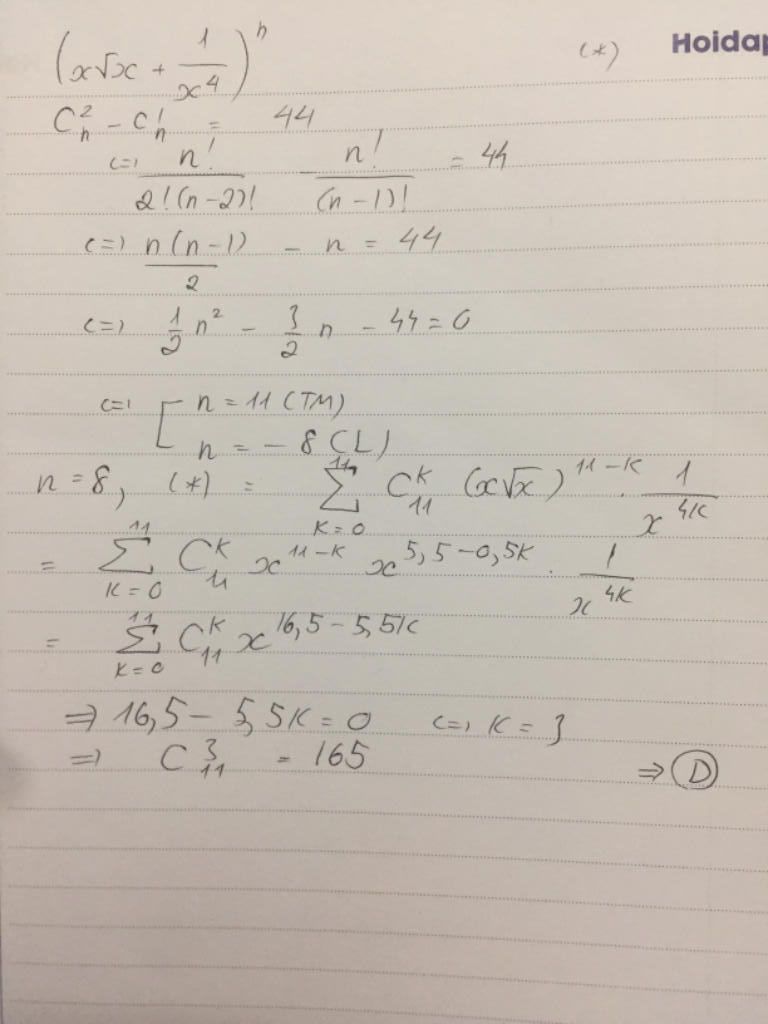 (x√x + 1/x^4)^n (*) Hoidap
C_n^2 - C_n^1 = 44
<=> n!/(2!(n-2)!) - n!/((n-1)!) = 44
<=> n(n-1)/2 - n = 44
<=> 1/2 n^2 - 3/2 n - 44 = 0
<=> [ n = 11 (TM)
n = - 8 (L)
n = 8, (*) = ∑_{K=0}^{11} C_11^K (x√x)^{11-K} . 1/x^{4K}
= ∑_{K=0}^{11} C_11^K x^{11-K} x^{5,5-0,5K} . 1/x^{4K}
= ∑_{K=0}^{11} C_11^K x^{16,5-5,5K}
=> 16,5 - 5,5K = 0 <=> K = 3
=> C_11^3 = 165 => D